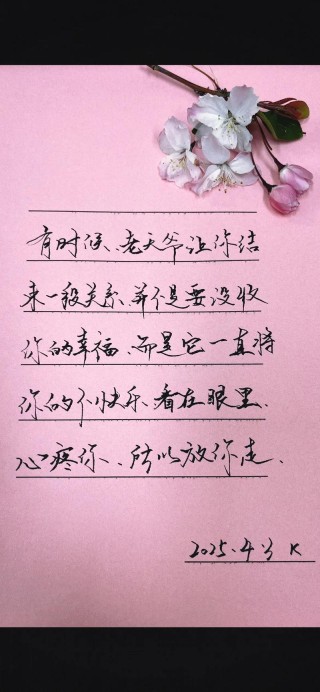 有时候、老天爷让你结
束一段关系、并不是要没收
你的幸福、而是它一直将
你的不快乐、看在眼里、
心疼你、所以放你走、
2025.4.3 K